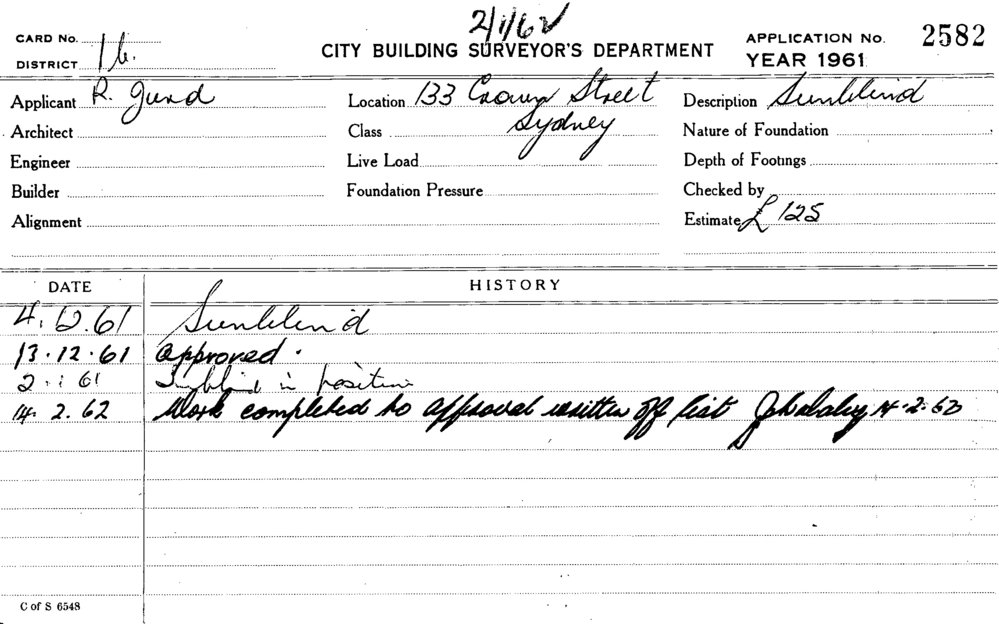 2/1/62
CARD No. CITY BUILDING SURVEYOR'S DEPARTMENT APPLICATION No. 2582
DISTRICT 16. YEAR 1961
Applicant R. Location 133 Crown Street Description Sunblind
Architect Class Sydney Nature of Foundation
Engineer Live Load Depth of Footings
Builder Foundation Pressure Checked by
Alignment Estimate £ 125
DATE HISTORY
4.12.61 Sunblind
13.12.61 Approved.
2.1.61 Sunblind in position
14.2.62 Work completed to approval written off list 14.2.62
C of S 6548